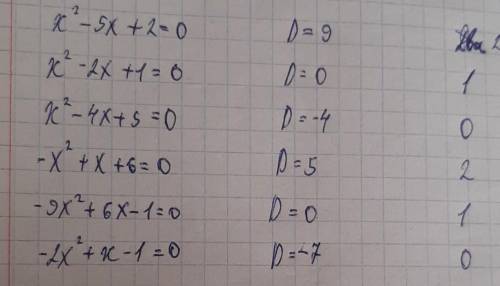 x² - 5x + 2 = 0 D = 9 2
x² - 2x + 1 = 0 D = 0 1
x² - 4x + 5 = 0 D = -4 0
-x² + x + 6 = 0 D = 5 2
-9x² + 6x - 1 = 0 D = 0 1
-2x² + x - 1 = 0 D = -7 0